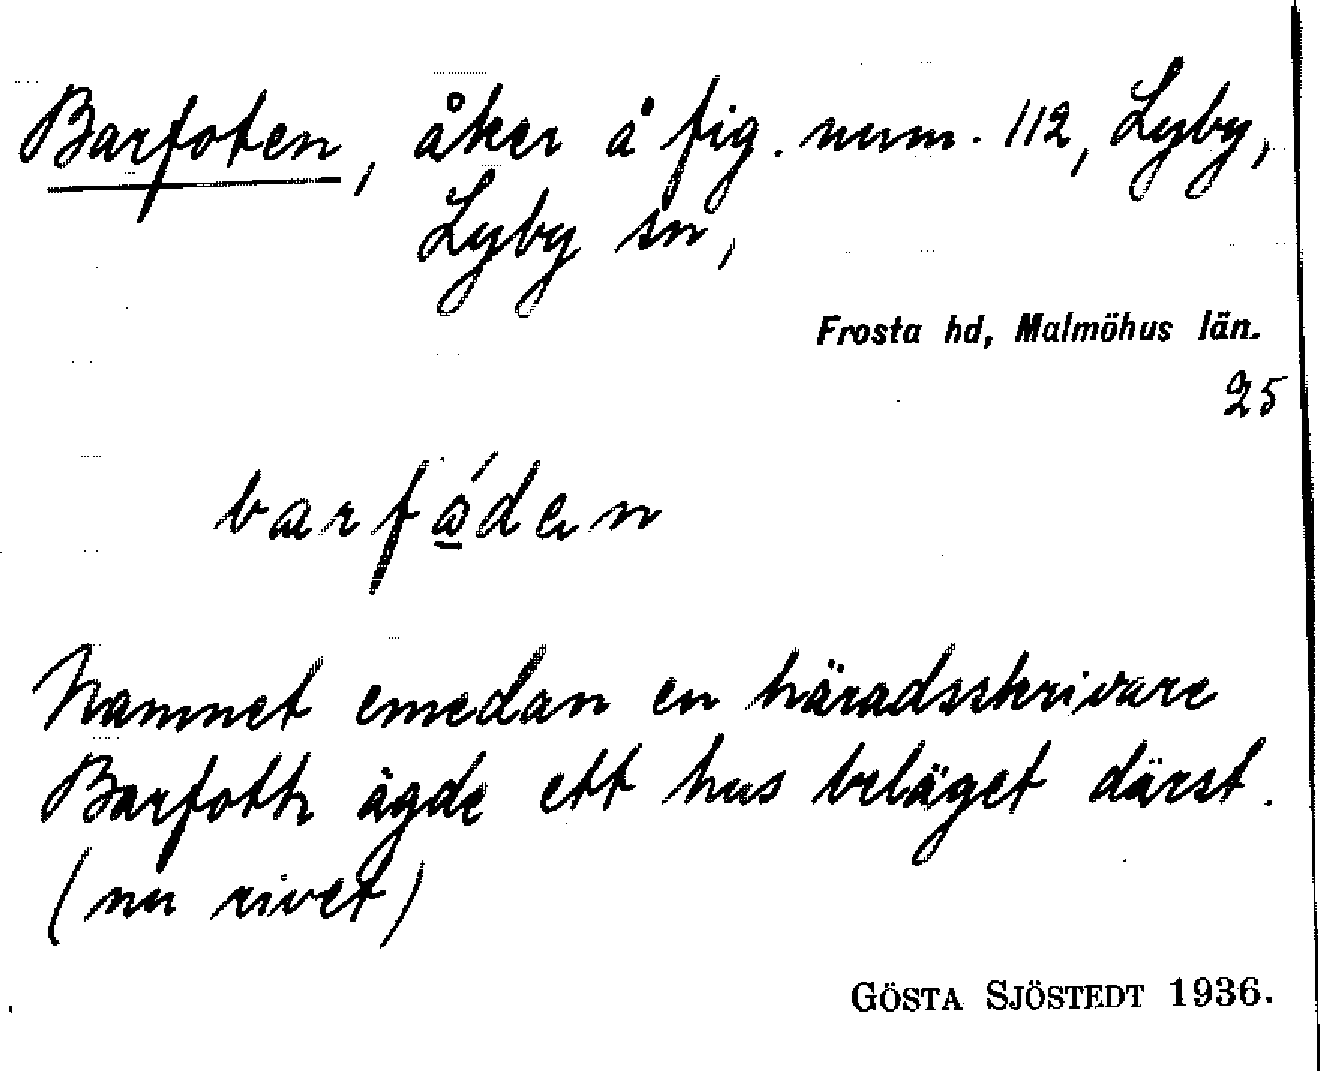 Barfoten, åker å fig. num. 112, Lyby,
Lyby sn,
Frosta hd, Malmöhus län.
25
barfǻ̱den
Namnet emedan en häradsskrivare
Barfoth ägde ett hus beläget därst.
(nu rivet)
GÖSTA SJÖSTEDT 1936.